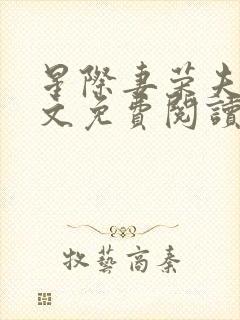 星際妻榮夫
文免費閱讀
牧藝高秦